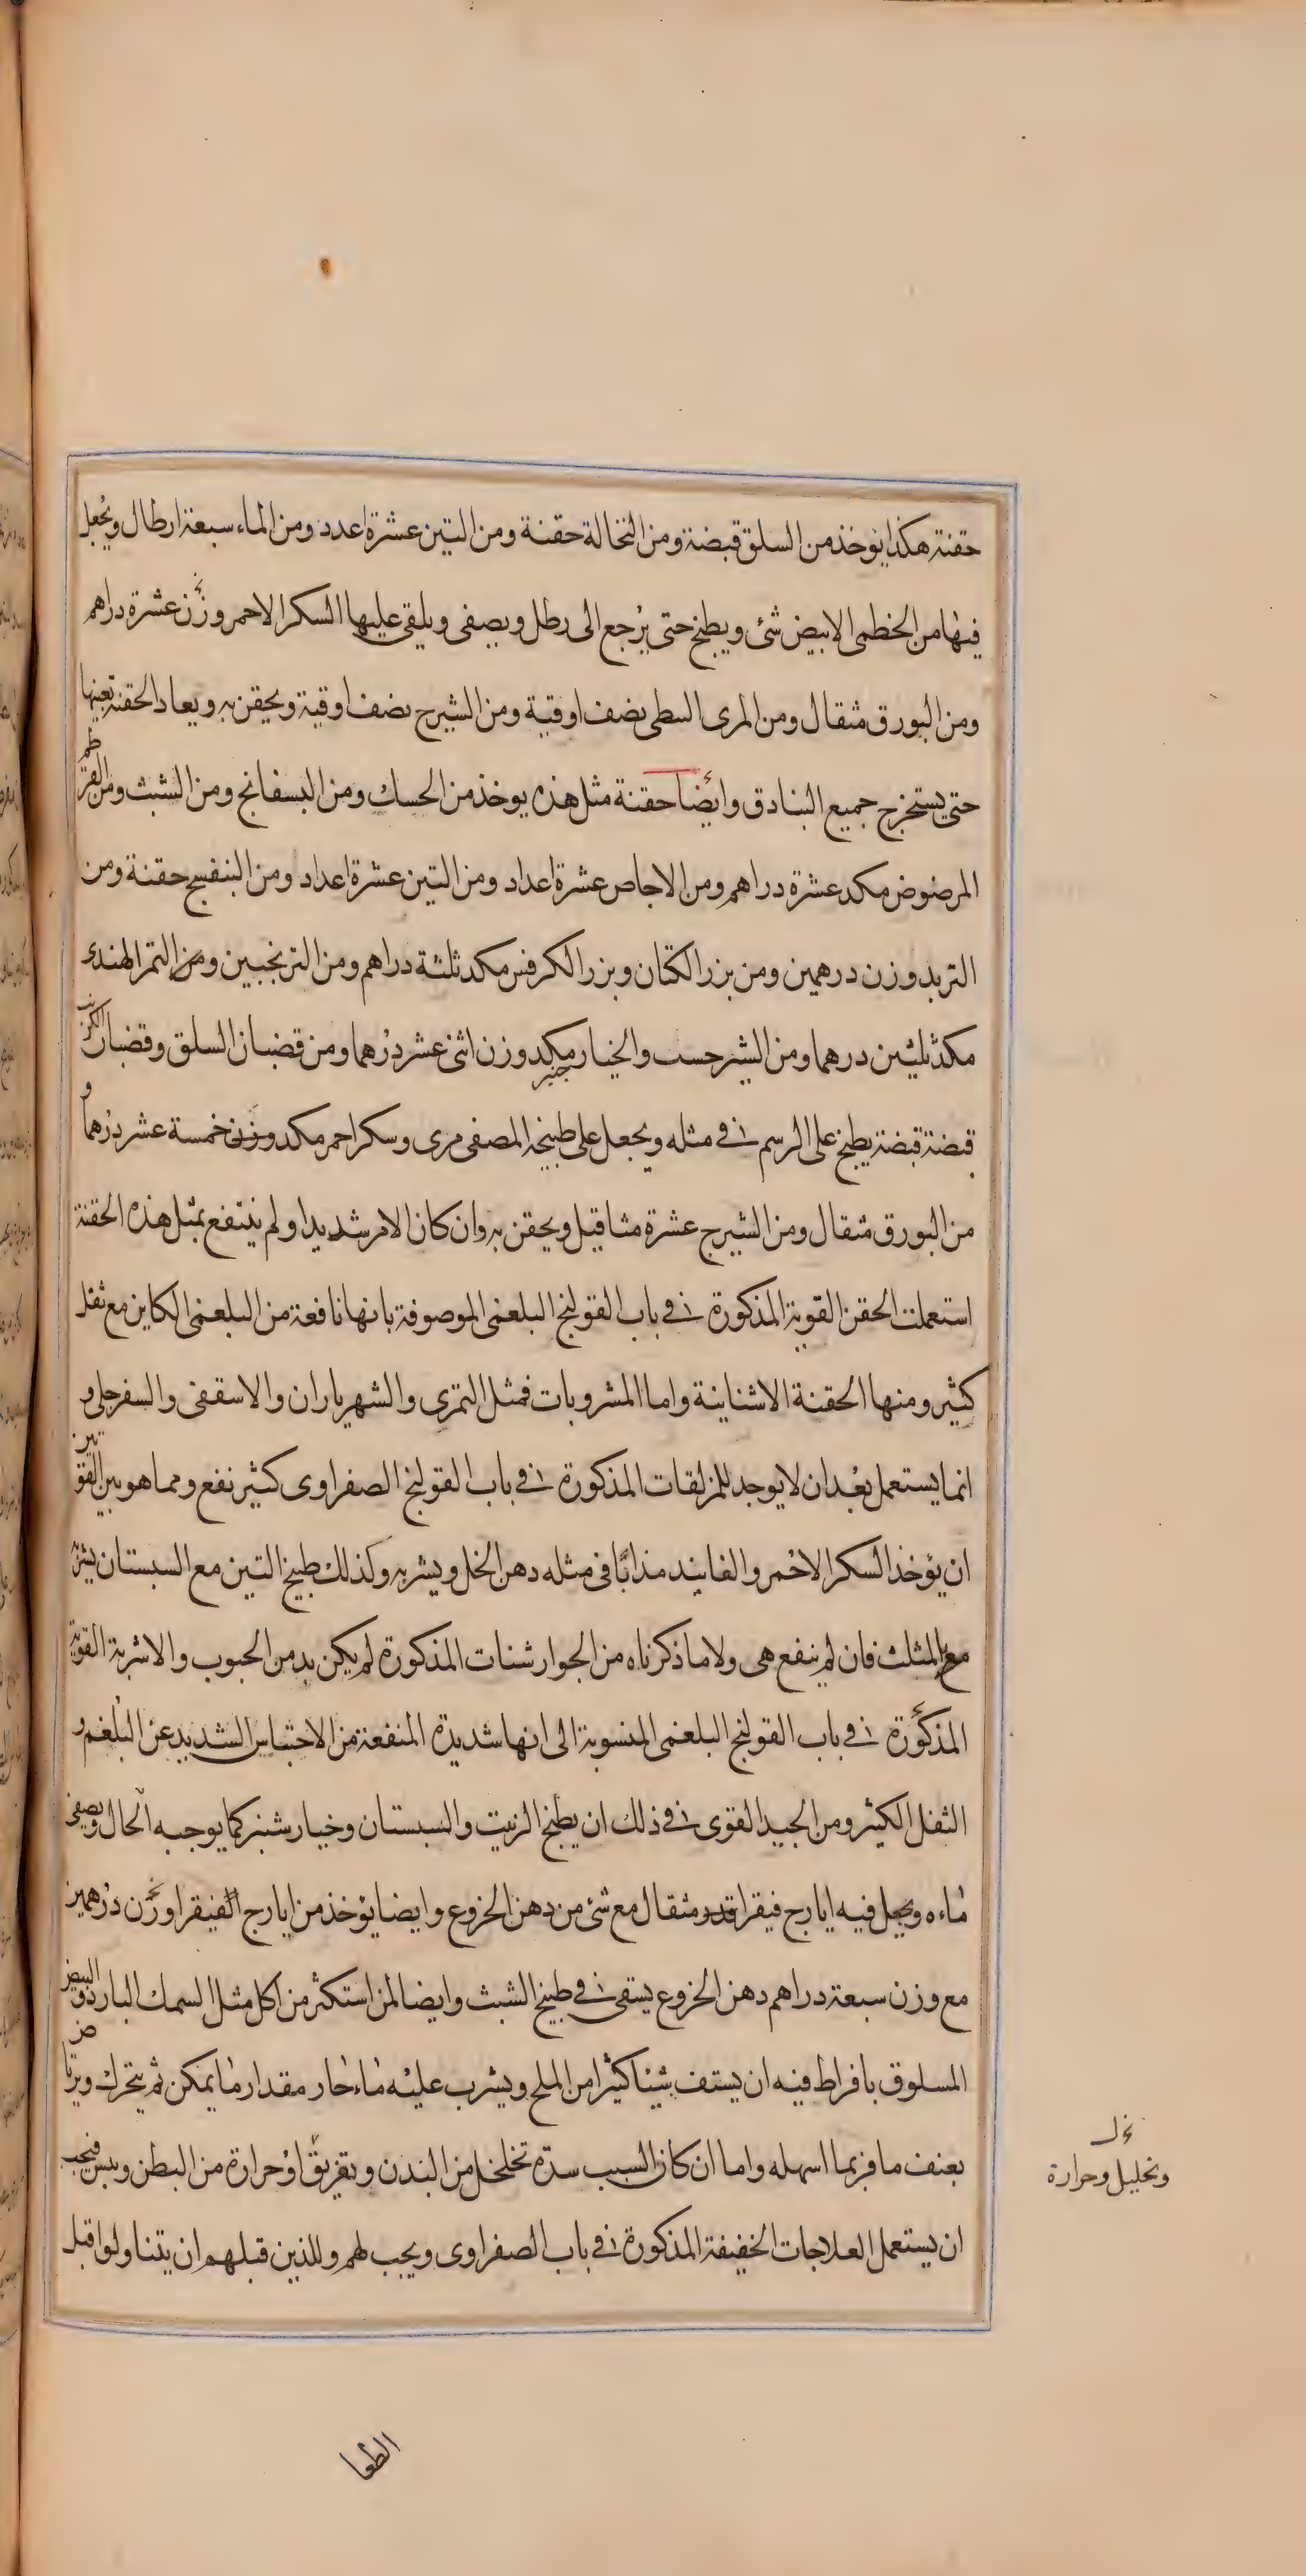 حقنة هكذا يوخذ من السلق قبضة ومن النخالة حقنة ومن التين عشرة اعدد ومن الماء سبعة ارطال ويُجعل
فيها من الخطمى الابيض شئ ويطبخ حتى يرجع الى رطل ويصفى ويلقى عليها السكر الاحمر وزن عشرة دراهم
ومن البورق مثقال ومن المرى النبطى نصف اوقية ومن الشيرج نصف اوقية ويحقن به ويعاد الحقنة بعينها
حتى يستخرج جميع البنادق وايضا حقنة مثل هذه يوخذ من الحسك ومن البسفانج ومن الشبث ومن القرطم
المرضوض مكد عشرة دراهم ومن الاجاص عشرة اعداد ومن التين عشرة اعداد ومن البنفسج حقنة ومن
التربد وزن درهمين ومن بزر الكتان وبزر الكرفس مكد ثلثة دراهم ومن الترنجبين ومن التمر الهندى
مكد ثلثين درهما ومن الشيرخست والخيار جنبر مكد وزن اثنى عشر درهما ومن قضبان السلق وقضبان الكرنب
قبضة قبضة يطبخ على الرسم فى مثله ويجعل على طبيخه المصفى مرى وسكر احمر مكد وزن خمسة عشر درهما و
من البورق مثقال ومن الشيرج عشرة مثاقيل ويحقن به وان كان الامر شديدا ولم ينتفع بمثل هذه الحقنة
استعملت الحقن القوية المذكورة فى باب القولنج البلغمى الموصوفة بانها نافعة من البلغمى الكاين مع ثفل
كثير ومنها الحقنة الاشنانية واما المشروبات فمثل التمرى والشهرياران والاسقفى والسفرجلى و
انما يستعمل بعد ان لا يوجد للمزلقات المذكورة فى باب القولنج الصفراوى كثير نفع ومما هو بين القوتين
ان يؤخذ السكر الاحمر والفانيد مذابًا فى مثله دهن الخل ويشربه وكذلك طبيخ التين مع السبستان يشربه
مع المثلث فان لم ينفع هى ولا ما ذكرناه من الجوارشنات المذكورة لم يكن بد من الحبوب والاشربة القوية
المذكورة فى باب القولنج البلغمى المنسوبة الى انها شديدة المنفعة من الاحتباس الشديد عن البلغم و
الثفل الكثير ومن الجيد القوى فى ذلك ان يطبخ الزبيت والسبستان وخيارشنبر كما يوجبه الحال ويصفى
ماءه ويجعل فيه ايارج فيقرا قدر مثقال مع شئ من دهن الخروع وايضا يؤخذ من ايارج الفيقرا وزن درهمين
مع وزن سبعة دراهم دهن الخروع يسقى فى طبيخ الشبث وايضا لمن استكثر من اكل مثل السمك البارد والبيض
المسلوق بافراط فيه ان يستف شيئا كثيرا من الملح ويشرب عليه ماء حار مقدار ما يمكن ثم يتحرك ويرتاض
بعنف ما فربما اسهله واما ان كان السبب سدة تخلخل من البدن وتفريق او حرارة من البطن ويبس فيجب
ان يستعمل العلاجات الخفيفة المذكورة فى باب الصفراوى ويجب لهم وللذين قبلهم ان يتناولوا قبل
وتحليل وحرارة
الطعا